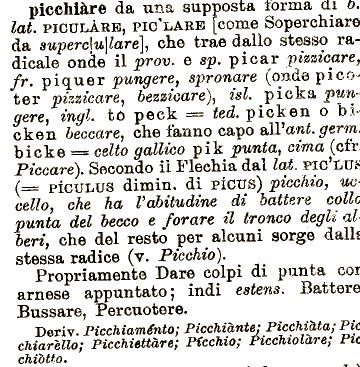 picchiàre da una supposta forma di b.
lat. PICULÀRE, PIC'LARE [come Soperchiare
da superc|u|lare], che trae dallo stesso ra-
dicale onde il prov. e sp. picar pizzicare,
fr. piquer pungere, spronare (onde pico-
ter pizzicare, bezzicare), isl. picka pun-
gere, ingl. to peck = ted. picken o bi-
cken beccare, che fanno capo all'ant. germ.
bicke = celto gallico pik punta, cima (cfr.
Piccare). Secondo il Flechia dal lat. PIC'LUS
(= PÍCULUS dimin. di PÍCUS) picchio, uc-
cello, che ha l'abitudine di battere colla
punta del becco e forare il tronco degli al-
beri, che del resto per alcuni sorge dalla
stessa radice (v. Picchio).
Propriamente Dare colpi di punta con
arnese appuntato; indi estens. Battere
Bussare, Percuotere.
Deriv. Picchiaménto; Picchiànte; Picchiàta; Pic
chiarèllo; Picchiettàre; Picchio; Picchiolàre; Pic
chiòtto.